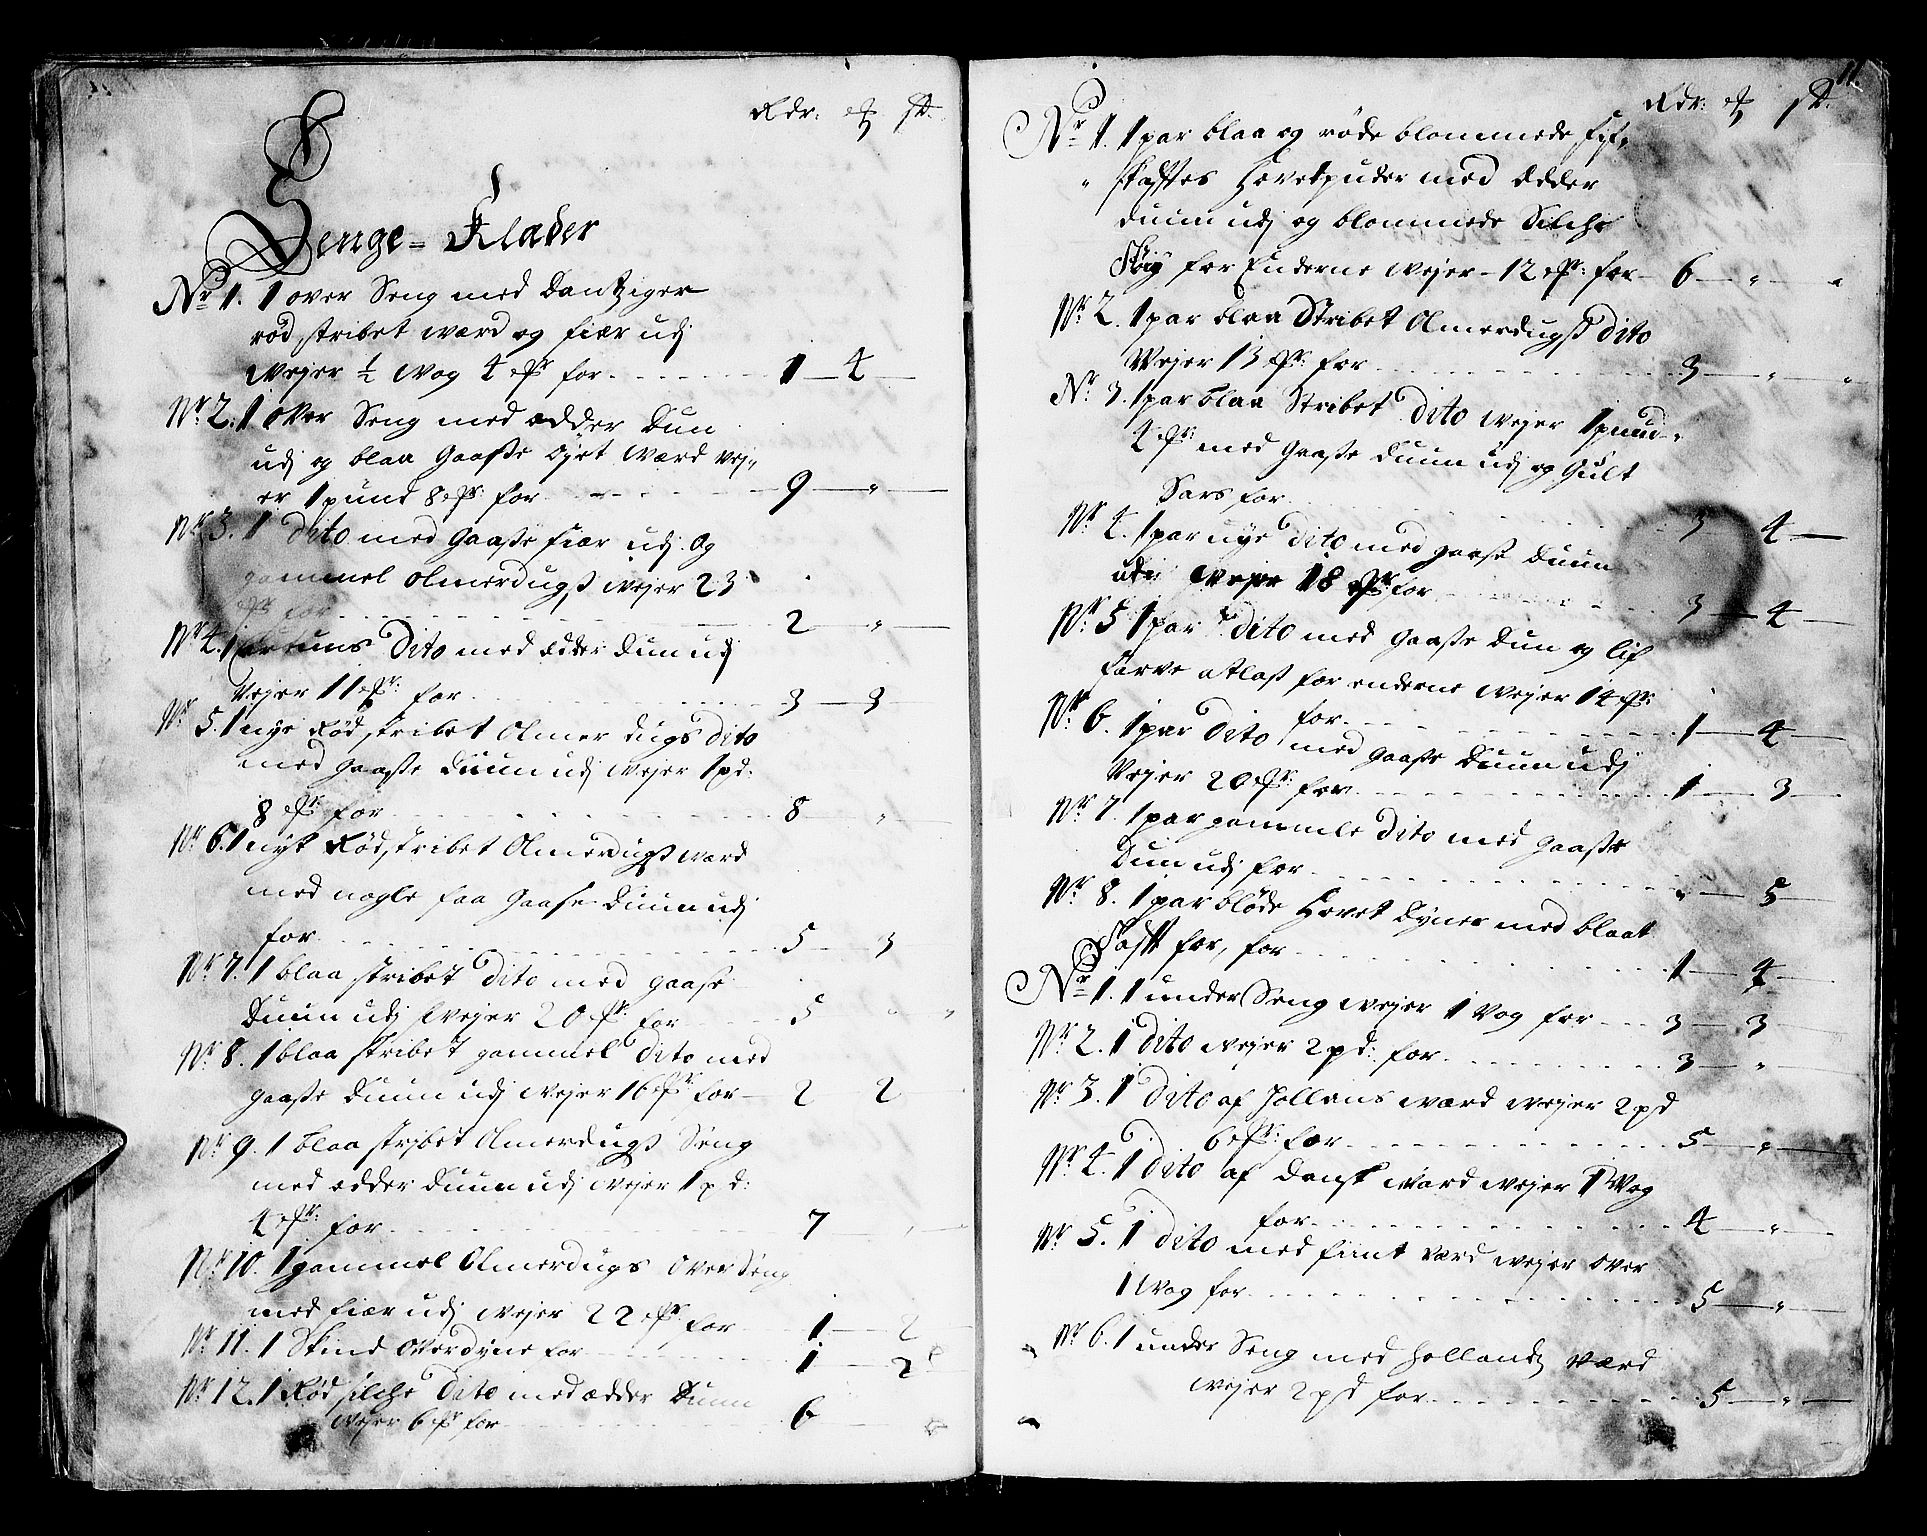 Rdr: ℳ ß.
Senge= Klæder
Nr 1. 1 over Seng med Dantziger
rød stribet waard og fiær udj
weyer ½ wog 4 ℔r for - - - 1 — 4 —
Nr 2. 1 over Seng med ædder Dun
udj og blaa Gaasse øyet waard vej„
er 1 pund 8 ℔r for - - - 9 — „ —
Nr 3. 1 Dito med gaasse fiær udj og
gammel olmerdugß weyer 23
℔r for - - - 2 — „ —
Nr 4. 1 Cartuns Dito med ædder Dun udj
Vejer 11 ℔r: for - - - 3 — 3 —
Nr 5. 1 nye Rød stribet Olmer dugs Dito
med gaasse Duun udj weyer 1 pd:
8 ℔r for - - - 8 — „ —
Nr 6. 1 nyt Rød stribet Olmerdugß waard
med nogle faa gaase Duun udj
for - - - 5 — 3
Nr 7. 1 blaa stribet Dito med gaase
Duun udj weyer 20 ℔r for - - - 5 „ „
Nr 8. 1 blaa stribet gammel Dito med
gaasse Duun udj weyer 16 ℔r for - 2 2 —
Nr 9. 1 blaa stribet Olmerdugß Seng
med ædder Duun udj weyer 1 pd:
4 ℔r: for - - - 7 — „ —
Nr 10. 1 gammel Olmerdugs over Seng
med fiær udj weyer 22 ℔r for - 1 — 2 —
Nr 11. 1 Skind overdyne for - - - 1 — 2
Nr 12. 1 Rød silche Dito med ædder Duun
weyer 6 ℔r for - - - 6 —
11.
Rdr: ℳ ß.
Nr 1. 1 par blaa og røde blommede
Hovetpuder med Edder
duun udj og blommede Silche
Tøig for Enderne weyer - 12 ℔r: for - 6 — „ — „
Nr 2. 1 par blaa Stribet Olmerdugß Dito
Weyer 13 ℔r: for - - - 3 — „ — „
Nr 3. 1 par blaa Stribet Dito weyer 1 puud
4 ℔r: med Gaasse Duun udj og Gult
Sars for - - - 3 — 4 —
Nr 4. 1 par nye Dito med gaase Duun
udj weyer 18 ℔r: for - - - 3 — 4 —
Nr 5. 1 par Dito med Gaasse Dun og lif
farve atlask for enderne weyer 14 ℔r:
for - - - 1 — 4 —
Nr 6. 1 par Dito med gaasse Duun udj
Vejer 20 ℔r: for - - - 1 — 3 —
Nr 7. 1 par gammele Dito med gaasse
Dun udj for - - - „ — 5 —
Nr 8. 1 par bløde Hovet Dyner med blaat
Taft for, for - - - 1 — 4 —
Nr 1. 1 under Seng weyer 1 Vog for - - - 3 — 3
Nr 2. 1 Dito weyer 2 pd: for - - - 3 — „ —
Nr 3. 1 Dito af Hollans waard weyer 2 pd
6 ℔r: for - - - 5 — „ —
Nr 4. 1 Dito af Dansk waard weyer 1 Wog
for - - - 4 — „ —
Nr 5. 1 Dito med fiint vaard weyer over
1 Wog for - - - 5 — „ —
Nr 6. 1 under Seng med Hollandß værd
weyer 2 pd for - - - 5 — „ —